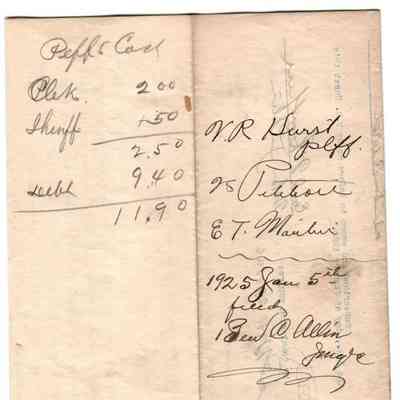 Peff's Cost
Clek. 2 00
Sheriff + 50
2.50
Debt 9.40
11.90
V. R Hurst
plff.
vs Petition
E T.
1925 Jan 5th
filed
Ben C Allin
Judge